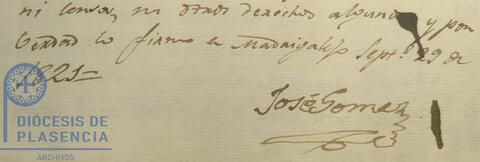 ni censo, ni otros derechos alguno y por
verdad lo firmo en Madrigalejo Septe. 29 de
1821=
José Gomez
DIÓCESIS DE
PLASENCIA
ARCHIVOS